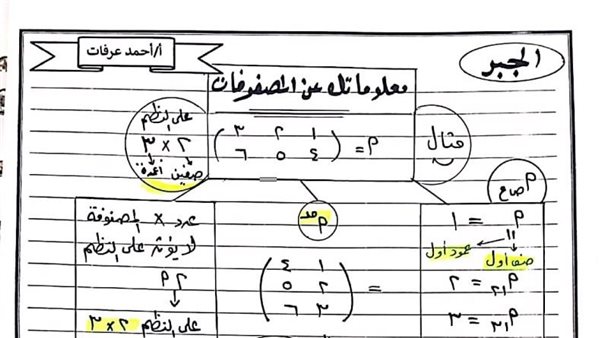 الجبر
أ/أحمد عرفات
معلوماتك عن المصفوفات
مثال
P = (١ ٢ ٣
٤ ٥ ٦)
على النظم
٢ × ٣
صفين أعمدة
P ص ع
P₁₁ = ١
صف أول عمود أول
P₂₁ = ٢
P₃₁ = ٣
P مد
= (١ ٤
٢ ٥
٣ ٦)
عدد × المصفوفة
لا يؤثر على النظم
٢ P
على النظم ٢ × ٣